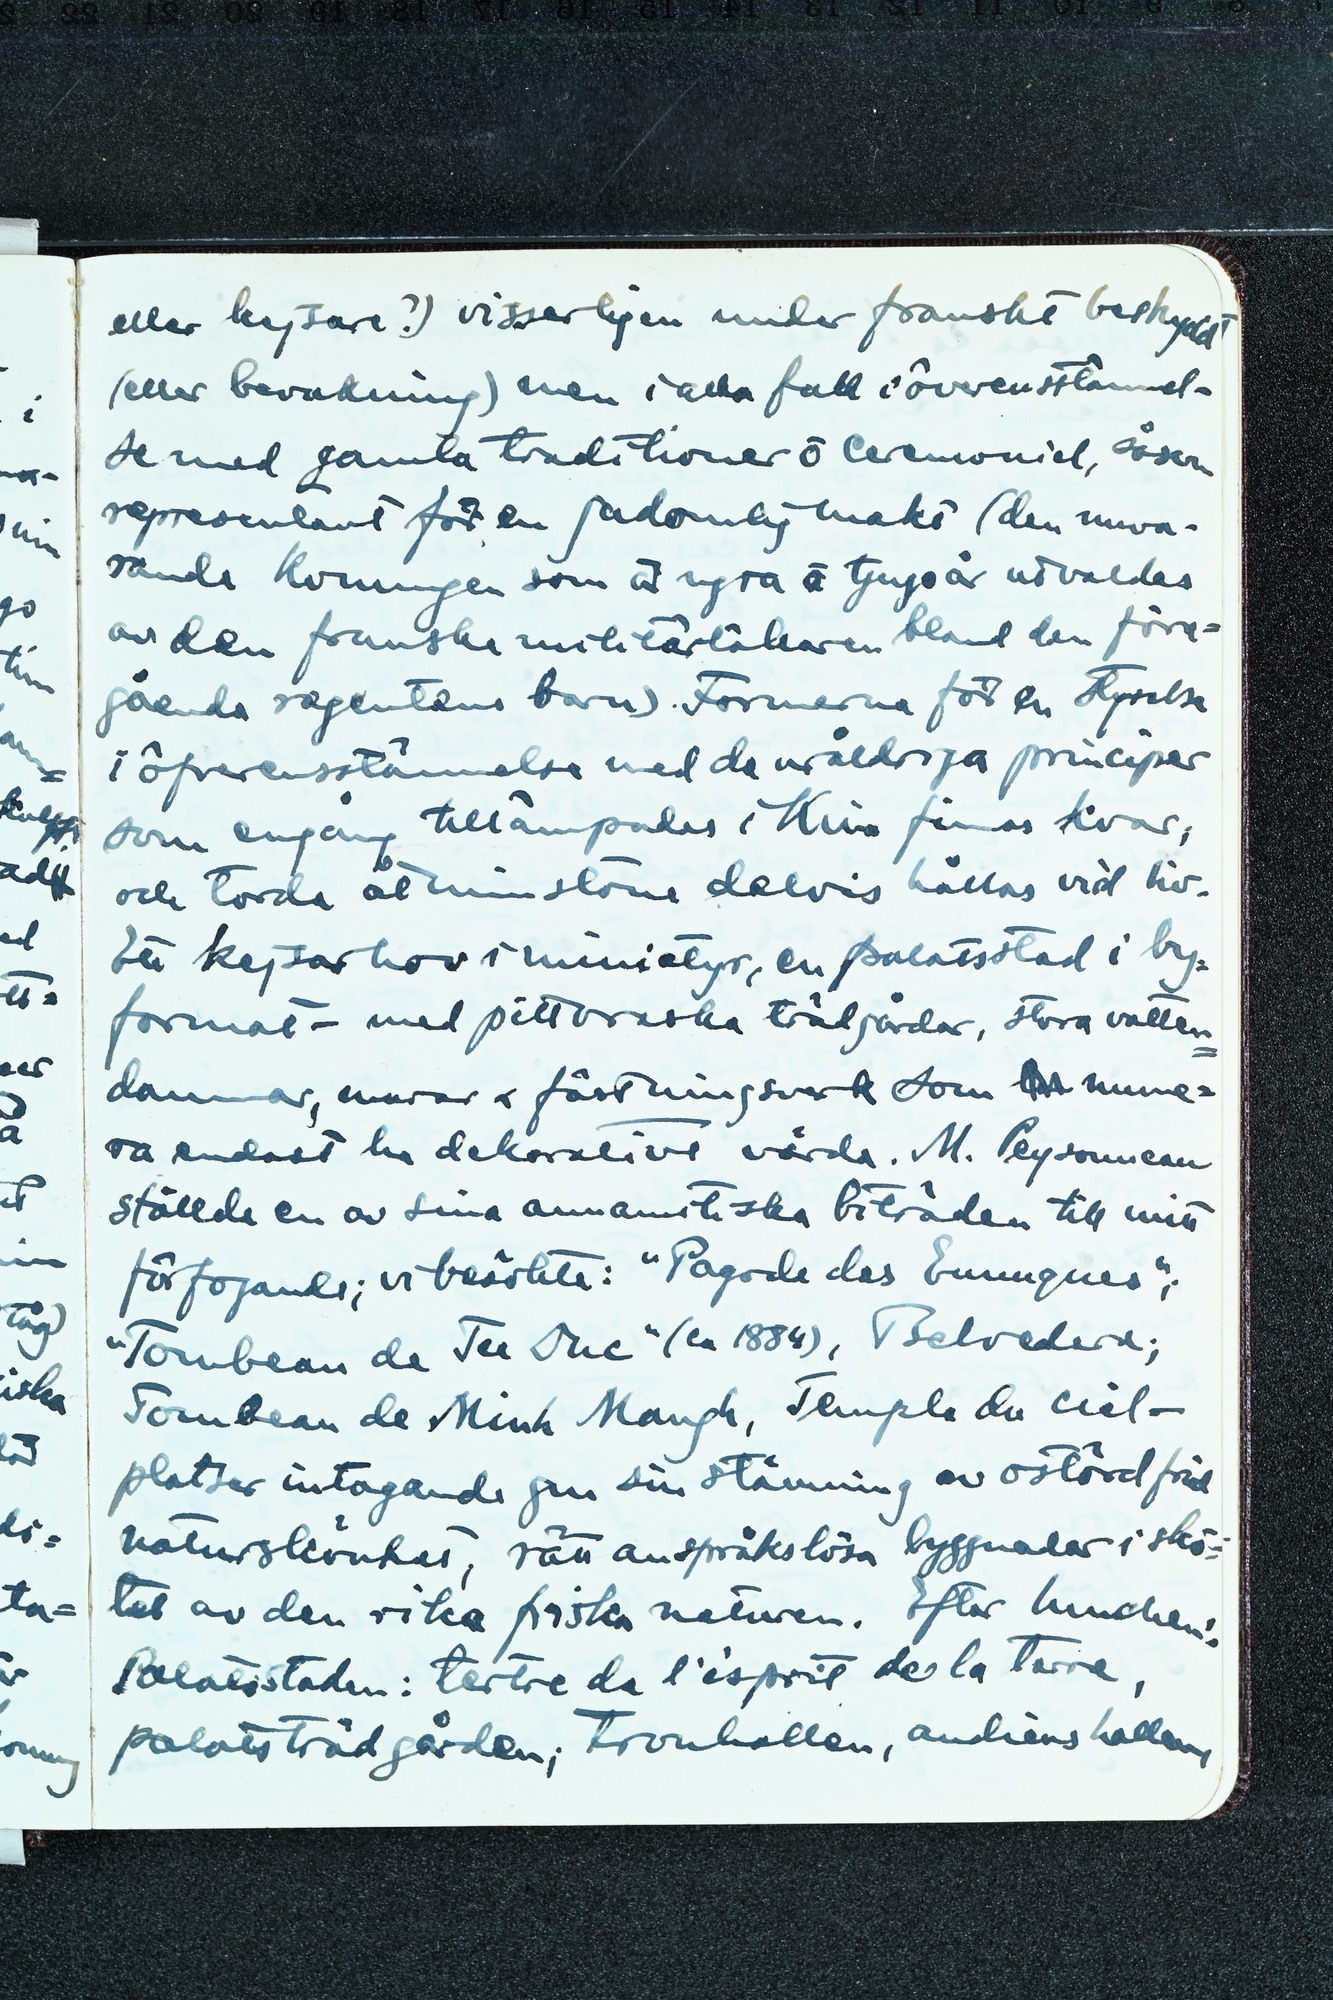 eller kejsare?) visserligen under franskt beskydd
(eller bevakning) men i alla fall i överensstämmel-
se med gamla traditioner o ceremoniel, såsom
representant för en gudomlig makt (den nuva-
rande konungen som är nyra à tjugo år utvaldes
av den franske militärläkaren bland den före=
gående regentens barn). Formerna för en styrelse
i öfverensstämmelse med de uråldriga principer
som engång tillämpades i Kina finnas kvar,
och torde åtminstone delvis hållas vid liv.
Ett kejsarhov i miniatyr, en palatsstad i by-
format – med pittoreska trädgårdar, stora vatten=
dammar, murar & fästningsverk som nume=
ra endast ha dekorativt värde. M. Peysonneau
ställde en av sina annamitiska biträden till mitt
förfogande; vi besökte: "Pagode des Eunuques";
"Tombeau de Tu Duc" (ca 1884), Belvedere;
Tombeau de Minh Mangh, Temple du ciel –
platser intagande gm sin stämning av ostörd frid
naturskönhet, rätt anspråkslösa byggnader i skö=
tet av den rika friska naturen. Efter lunchen:
Palatsstaden: tertre de l'esprit de la terre,
palatsträdgården; tronhallen, audienshallen,
22 21 20 19 18 17 16 15 14 13 12 11 10 9 8 7